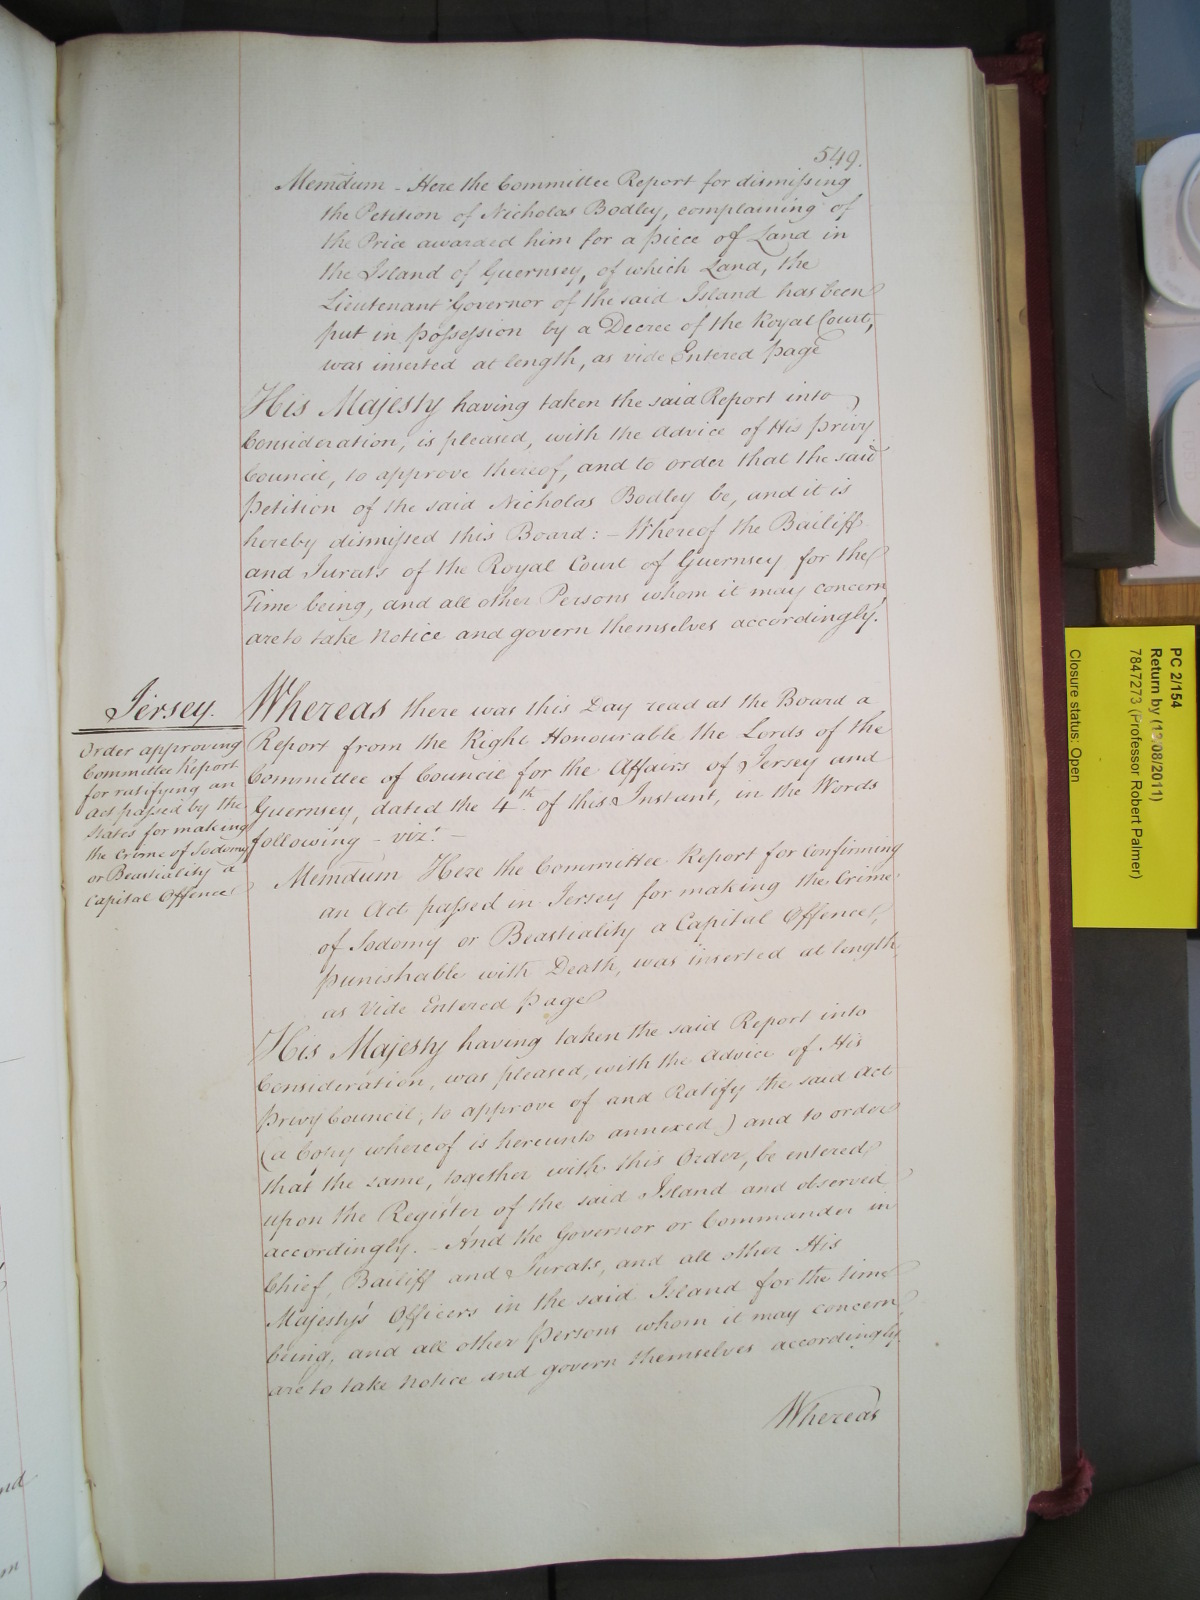 549.
Memdum - Here the Committee Report for dismissing
the Petition of Nicholas Bodley, complaining of
the Price awarded him for a piece of Land in
the Island of Guernsey, of which Land, the
Lieutenant Governor of the said Island has been
put in possession by a Decree of the Royal Court,
was inserted at length, as vide Entered page
His Majesty having taken the said Report into
Consideration, is pleased, with the Advice of His privy
Council, to approve thereof, and to order that the said
Petition of the said Nicholas Bodley be, and it is
hereby dismissed this Board: - Whereof the Bailiff
and Jurats of the Royal Court of Guernsey for the
Time being, and all other Persons whom it may concern,
are to take notice and govern themselves accordingly.
Jersey.
Order approving
Committee Report
for ratifying an
Act passed by the
States for making
the Crime of Sodomy
or Beastiality a
Capital Offence
Whereas there was this Day read at the Board a
Report from the Right Honourable the Lords of the
Committee of Council for the Affairs of Jersey and
Guernsey, dated the 4th of this Instant, in the Words
following - vizt. -
Memdum Here the Committee Report for Confirming
an Act passed in Jersey for making the Crime
of Sodomy or Beastiality a Capital Offence,
punishable with Death, was inserted at length,
as Vide Entered page
His Majesty having taken the said Report into
Consideration, was pleased, with the Advice of His
Privy Council, to approve of and Ratify the said Act
(a Copy whereof is hereunto annexed) and to order
that the same, together with this Order, be entered
upon the Register of the said Island and observed
accordingly. - And the Governor or Commander in
Chief, Bailiff and Jurats, and all other His
Majesty's Officers in the said Island for the time
being, and all other Persons whom it may concern,
are to take notice and govern themselves accordingly.
Whereas
PC 2/154
Return by (12/08/2011)
7847273 (Professor Robert Palmer)
Closure status: Open